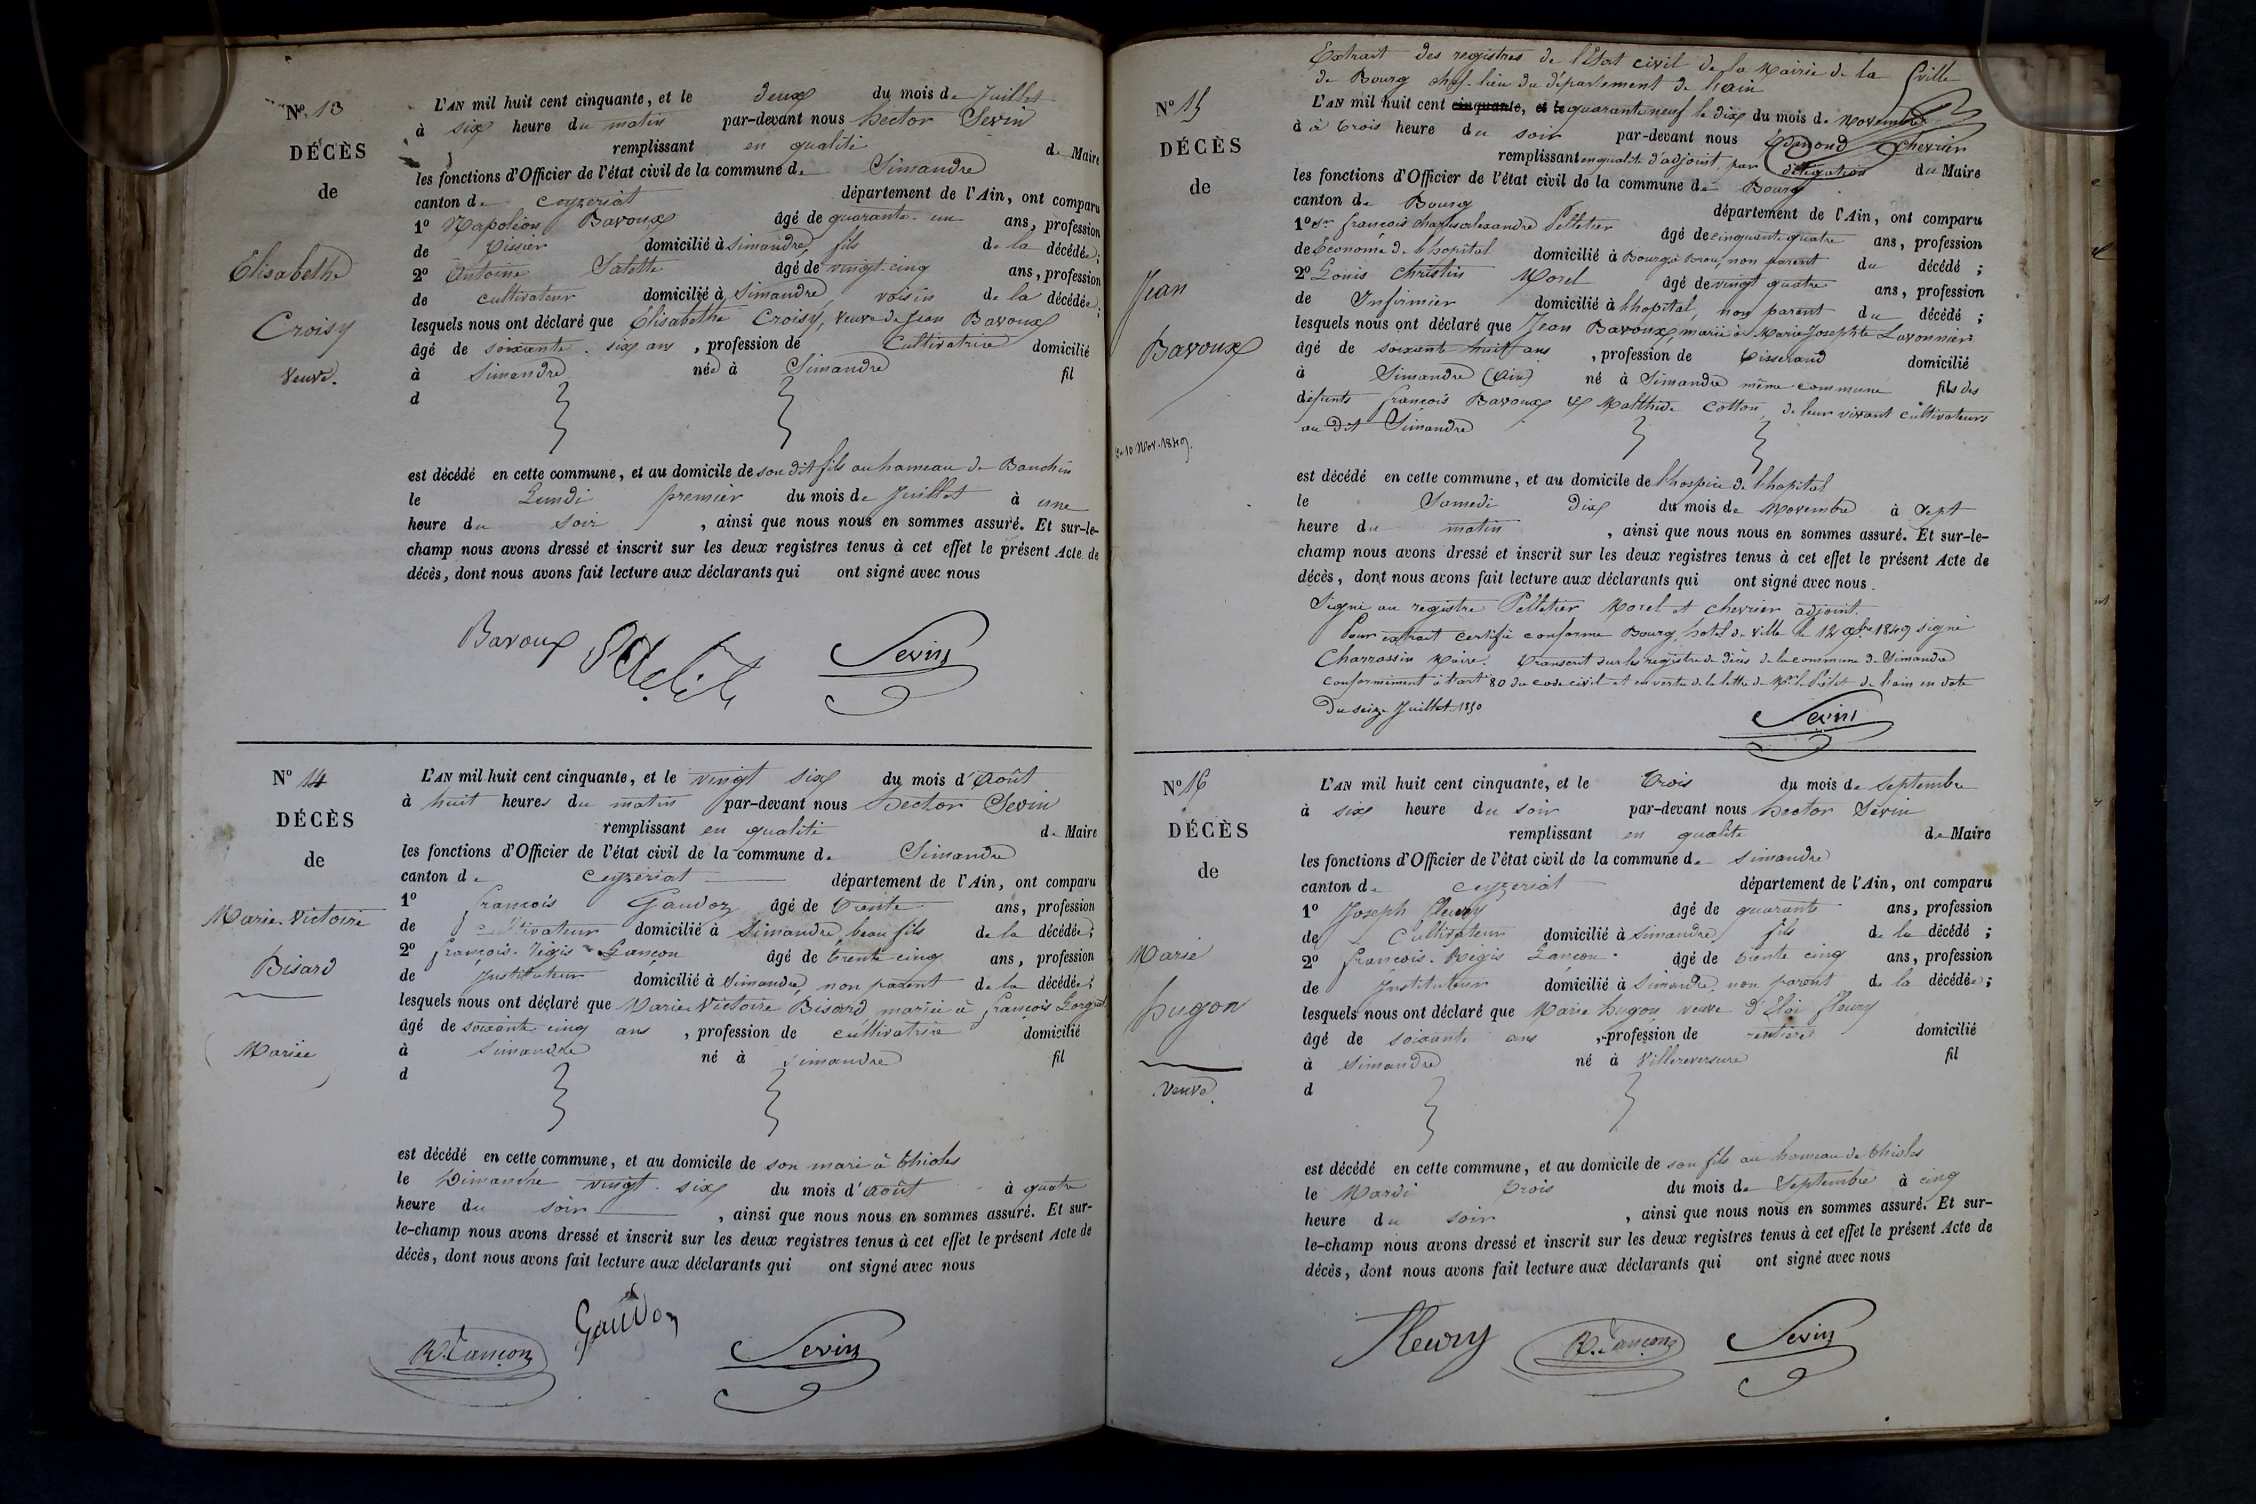 N° 13
DÉCÈS
de
Elisabethe
Croisy
Veuve.
L'AN mil huit cent cinquante, et le deux du mois de Juillet
à six heure du matin par-devant nous hector Sevin
remplissant en qualité de Maire
les fonctions d'Officier de l'état civil de la commune de Simandre
canton de Ceyzeriat département de l'Ain, ont comparu
1° Napoléon Bavoux âgé de quarante-un ans, profession
de tissier domicilié à Simandre, fils de la décédée;
2° Antoine âgé de vingt-cinq ans, profession
de cultivateur domicilié à Simandre, voisin de la décédée;
lesquels nous ont déclaré que Elisabethe Croisy, veuve de Jean Bavoux
âgé de soixante-six ans, profession de cultivatrice domicilié
à Simandre née à Simandre fil
d
est décédé en cette commune, et au domicile de son dit fils au hameau de Banchin
le Lundi premier du mois de Juillet à une
heure du soir, ainsi que nous nous en sommes assuré. Et sur-le-
champ nous avons dressé et inscrit sur les deux registres tenus à cet effet le présent Acte de
décès, dont nous avons fait lecture aux déclarants qui ont signé avec nous
Bavoux Sevin
N° 14
DÉCÈS
de
Marie-Victoire
Bisard
Mariée
L'AN mil huit cent cinquante, et le vingt six du mois d'Août
à huit heures du matin par-devant nous hector Sevin
remplissant en qualité de Maire
les fonctions d'Officier de l'état civil de la commune de Simandre
canton de Ceyzeriat département de l'Ain, ont comparu
1° françois Gaudoz âgé de trente ans, profession
de cultivateur domicilié à Simandre, beau fils de la décédée;
2° françois-Régis Lançon âgé de trente cinq ans, profession
de Instituteur domicilié à Simandre, non parent de la décédée;
lesquels nous ont déclaré que Marie Victoire Bisard mariée à françois
âgé de soixante cinq ans, profession de cultivatrice domicilié
à Simandre né à Simandre fil
d
est décédé en cette commune, et au domicile de son mari à thioles
le Dimanche vingt-six du mois d'Août à quatre
heure du soir, ainsi que nous nous en sommes assuré. Et sur-
le-champ nous avons dressé et inscrit sur les deux registres tenus à cet effet le présent Acte de
décès, dont nous avons fait lecture aux déclarants qui ont signé avec nous
R. Lançon Gaudoz Sevin
Extrait des registres de l'état civil de la Mairie de la ville
de Bourg chef-lieu du département de l'ain
N° 15
DÉCÈS
de
Jean
Bavoux
Le 10 Nov. 1849.
L'AN mil huit cent cinquante, et le quarante neuf le dix du mois de Novembre
à à trois heure du soir par-devant nous Edmond Chevrier
remplissant en qualité d'adjoint par délégation du Maire
les fonctions d'Officier de l'état civil de la commune de Bourg
canton de Bourg département de l'Ain, ont comparu
1° Sr. françois charles alexandre Pelletier âgé de cinquante quatre ans, profession
de Econome de l'hopital domicilié à Bourg à Brou, non parent du décédé;
2° Louis Christin Morel âgé de vingt quatre ans, profession
de Infirmier domicilié à l'hopital, non parent du décédé;
lesquels nous ont déclaré que Jean Bavoux, marié à Marie Josephte Lavonnier
âgé de soixante huit ans, profession de tisserand domicilié
à Simandre (Ain) né à Simandre même commune fils des
défunts françois Bavoux & Matthide Cotton, de leur vivant cultivateurs
au dit Simandre
est décédé en cette commune, et au domicile de l'hospice de l'hopital
le Samedi dix du mois de Novembre à Sept
heure du matin, ainsi que nous nous en sommes assuré. Et sur-le-
champ nous avons dressé et inscrit sur les deux registres tenus à cet effet le présent Acte de
décès, dont nous avons fait lecture aux déclarants qui ont signé avec nous.
Signé au registre Pelletier Morel et chevrier adjoint.
Pour extrait certifié conforme Bourg, hotel de ville le 12 9bre 1849 signé
Charrassin Maire. Transcrit sur les registre de décès de la commune de Simandre
conformément à l'art 80 du code civil et en vertu de la lettre de Mr. le Préfet de l'ain en date
du seize Juillet 1850
Sevin
N° 16
DÉCÈS
de
Marie
hugon
Veuve.
L'AN mil huit cent cinquante, et le trois du mois de Septembre
à six heure du soir par-devant nous hector Sevin
remplissant en qualité de Maire
les fonctions d'Officier de l'état civil de la commune de Simandre
canton de Ceyzeriat département de l'Ain, ont comparu
1° Joseph fleury âgé de quarante ans, profession
de Cultivateur domicilié à Simandre, fils de la décédé;
2° françois-Régis Lançon âgé de trente cinq ans, profession
de Instituteur domicilié à Simandre non parent de la décédée;
lesquels nous ont déclaré que Marie hugon veuve d'Eloi fleury
âgé de soixante ans, profession de rentière domicilié
à Simandre né à Villereversure fil
d
est décédé en cette commune, et au domicile de son fils au hameau de thioles
le Mardi trois du mois de Septembre à cinq
heure du soir, ainsi que nous nous en sommes assuré. Et sur-
le-champ nous avons dressé et inscrit sur les deux registres tenus à cet effet le présent Acte de
décès, dont nous avons fait lecture aux déclarants qui ont signé avec nous
Fleury R. Lançon Sevin